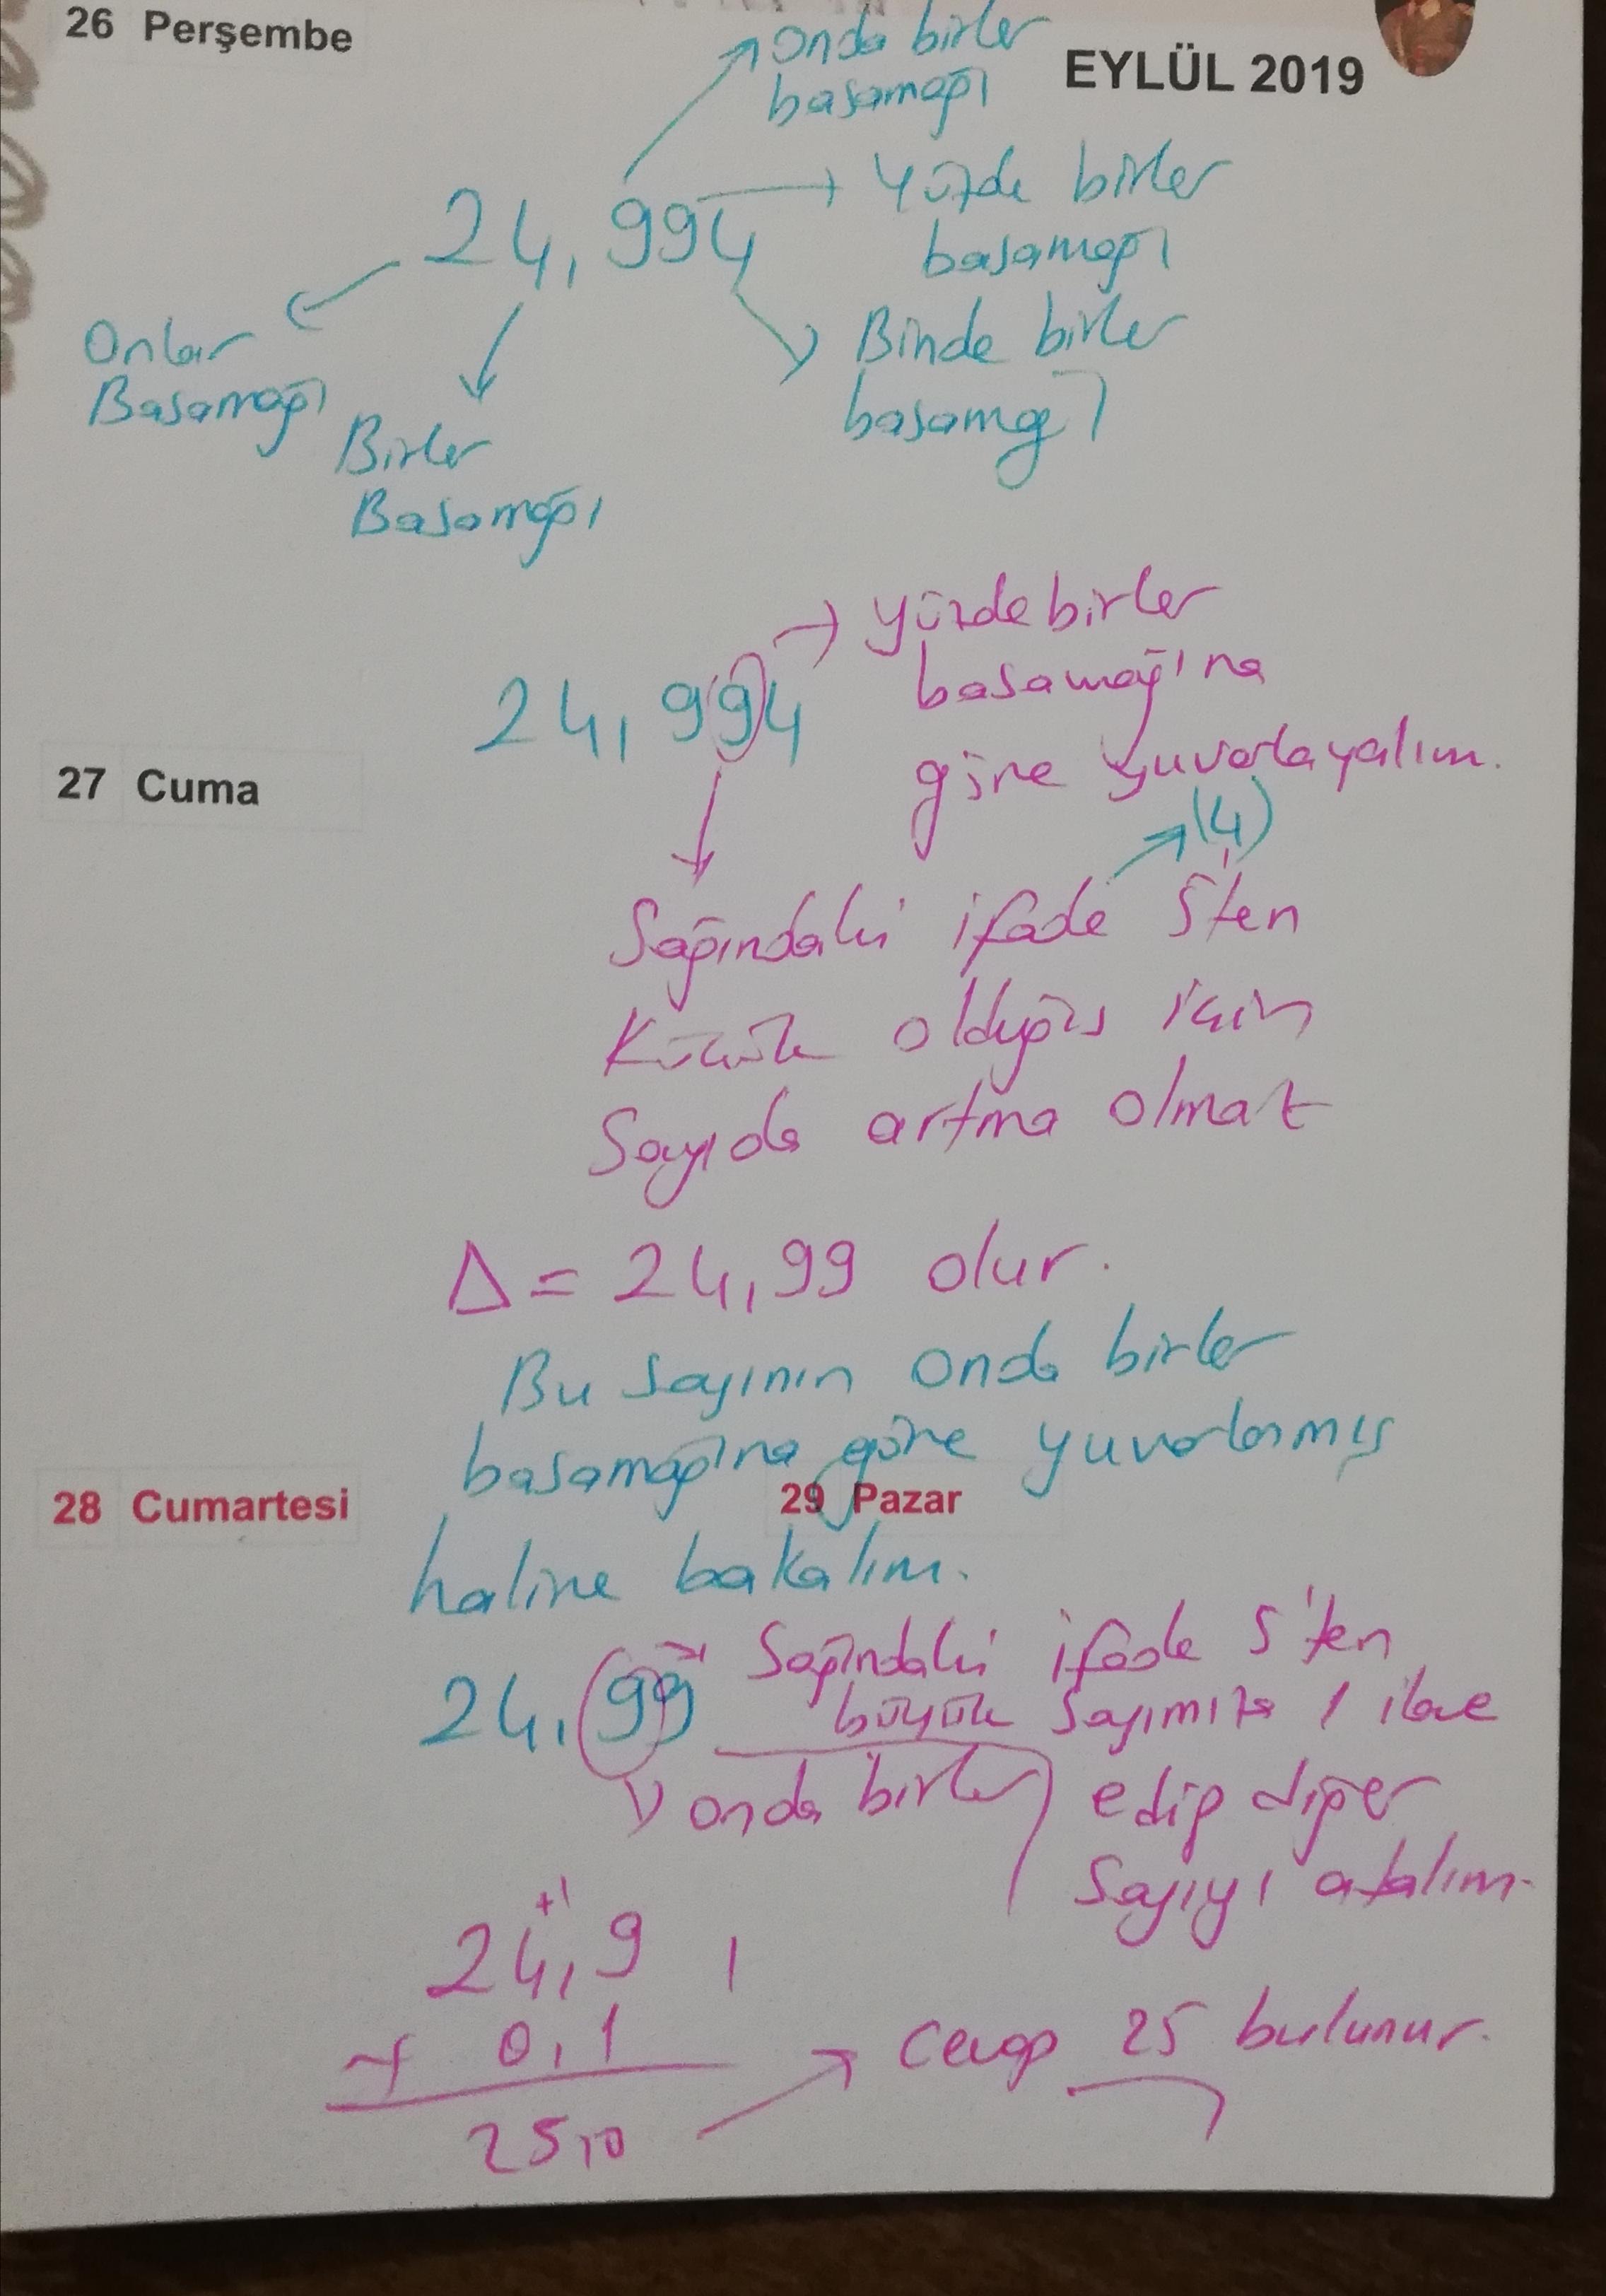 26 Perşembe
EYLÜL 2019
onda birler
basamağı
24,994
Yüzde birler
basamağı
Binde birler
basamağı
Onlar
Basamağı
Birler
Basamağı
24,994
yüzdebirler
basamağına
göre yuvarlayalım.
27 Cuma
(4)
Sağındaki ifade 5'ten
Küçük olduğu için
Sayıda artma olmaz
Δ = 24,99 olur.
Bu sayının onda birler
basamağına göre yuvarlanmış
28 Cumartesi
29 Pazar
haline bakalım.
24,99
Sağındaki ifade 5'ten
büyük sayımıza 1 ilave
onda birler
edip diğer
Sayıyı atalım.
+1
24,9
+ 0,1
25,0
Cevap 25 bulunur.